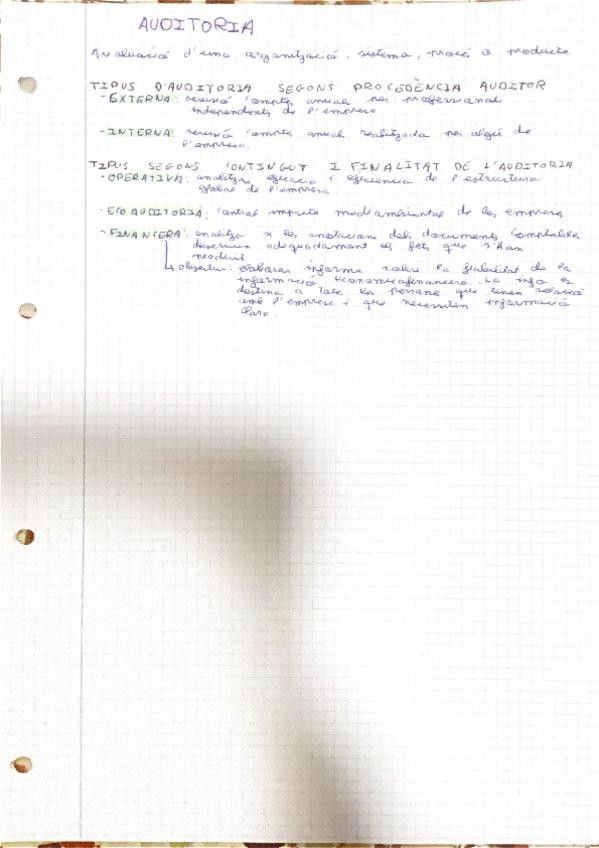 AUDITORIA
Avaluació d'una organització, sistema, procés o producte
TIPUS D'AUDITORIA SEGONS PROCEDÈNCIA AUDITOR
- EXTERNA: revisió comptes anuals per professionals
independents de l'empresa
- INTERNA: revisió comptes anuals realitzada per algú de
l'empresa.
TIPUS SEGONS CONTINGUT I FINALITAT DE L'AUDITORIA
- OPERATIVA: analitzar eficàcia i eficiència de l'estructura
global de l'empresa.
- ECOAUDITORIA: Control impacte mediambiental de les empreses
- FINANCERA: analitza si les anotacions dels documents comptables
descriuen adequadament els fets que s'han
produït
↳ objectiu: elaborar informe sobre la fiabilitat de la
informació economicofinancera. La info es
destina a totes les persones que tenen relació
amb l'empresa i que necessiten informació
clara.